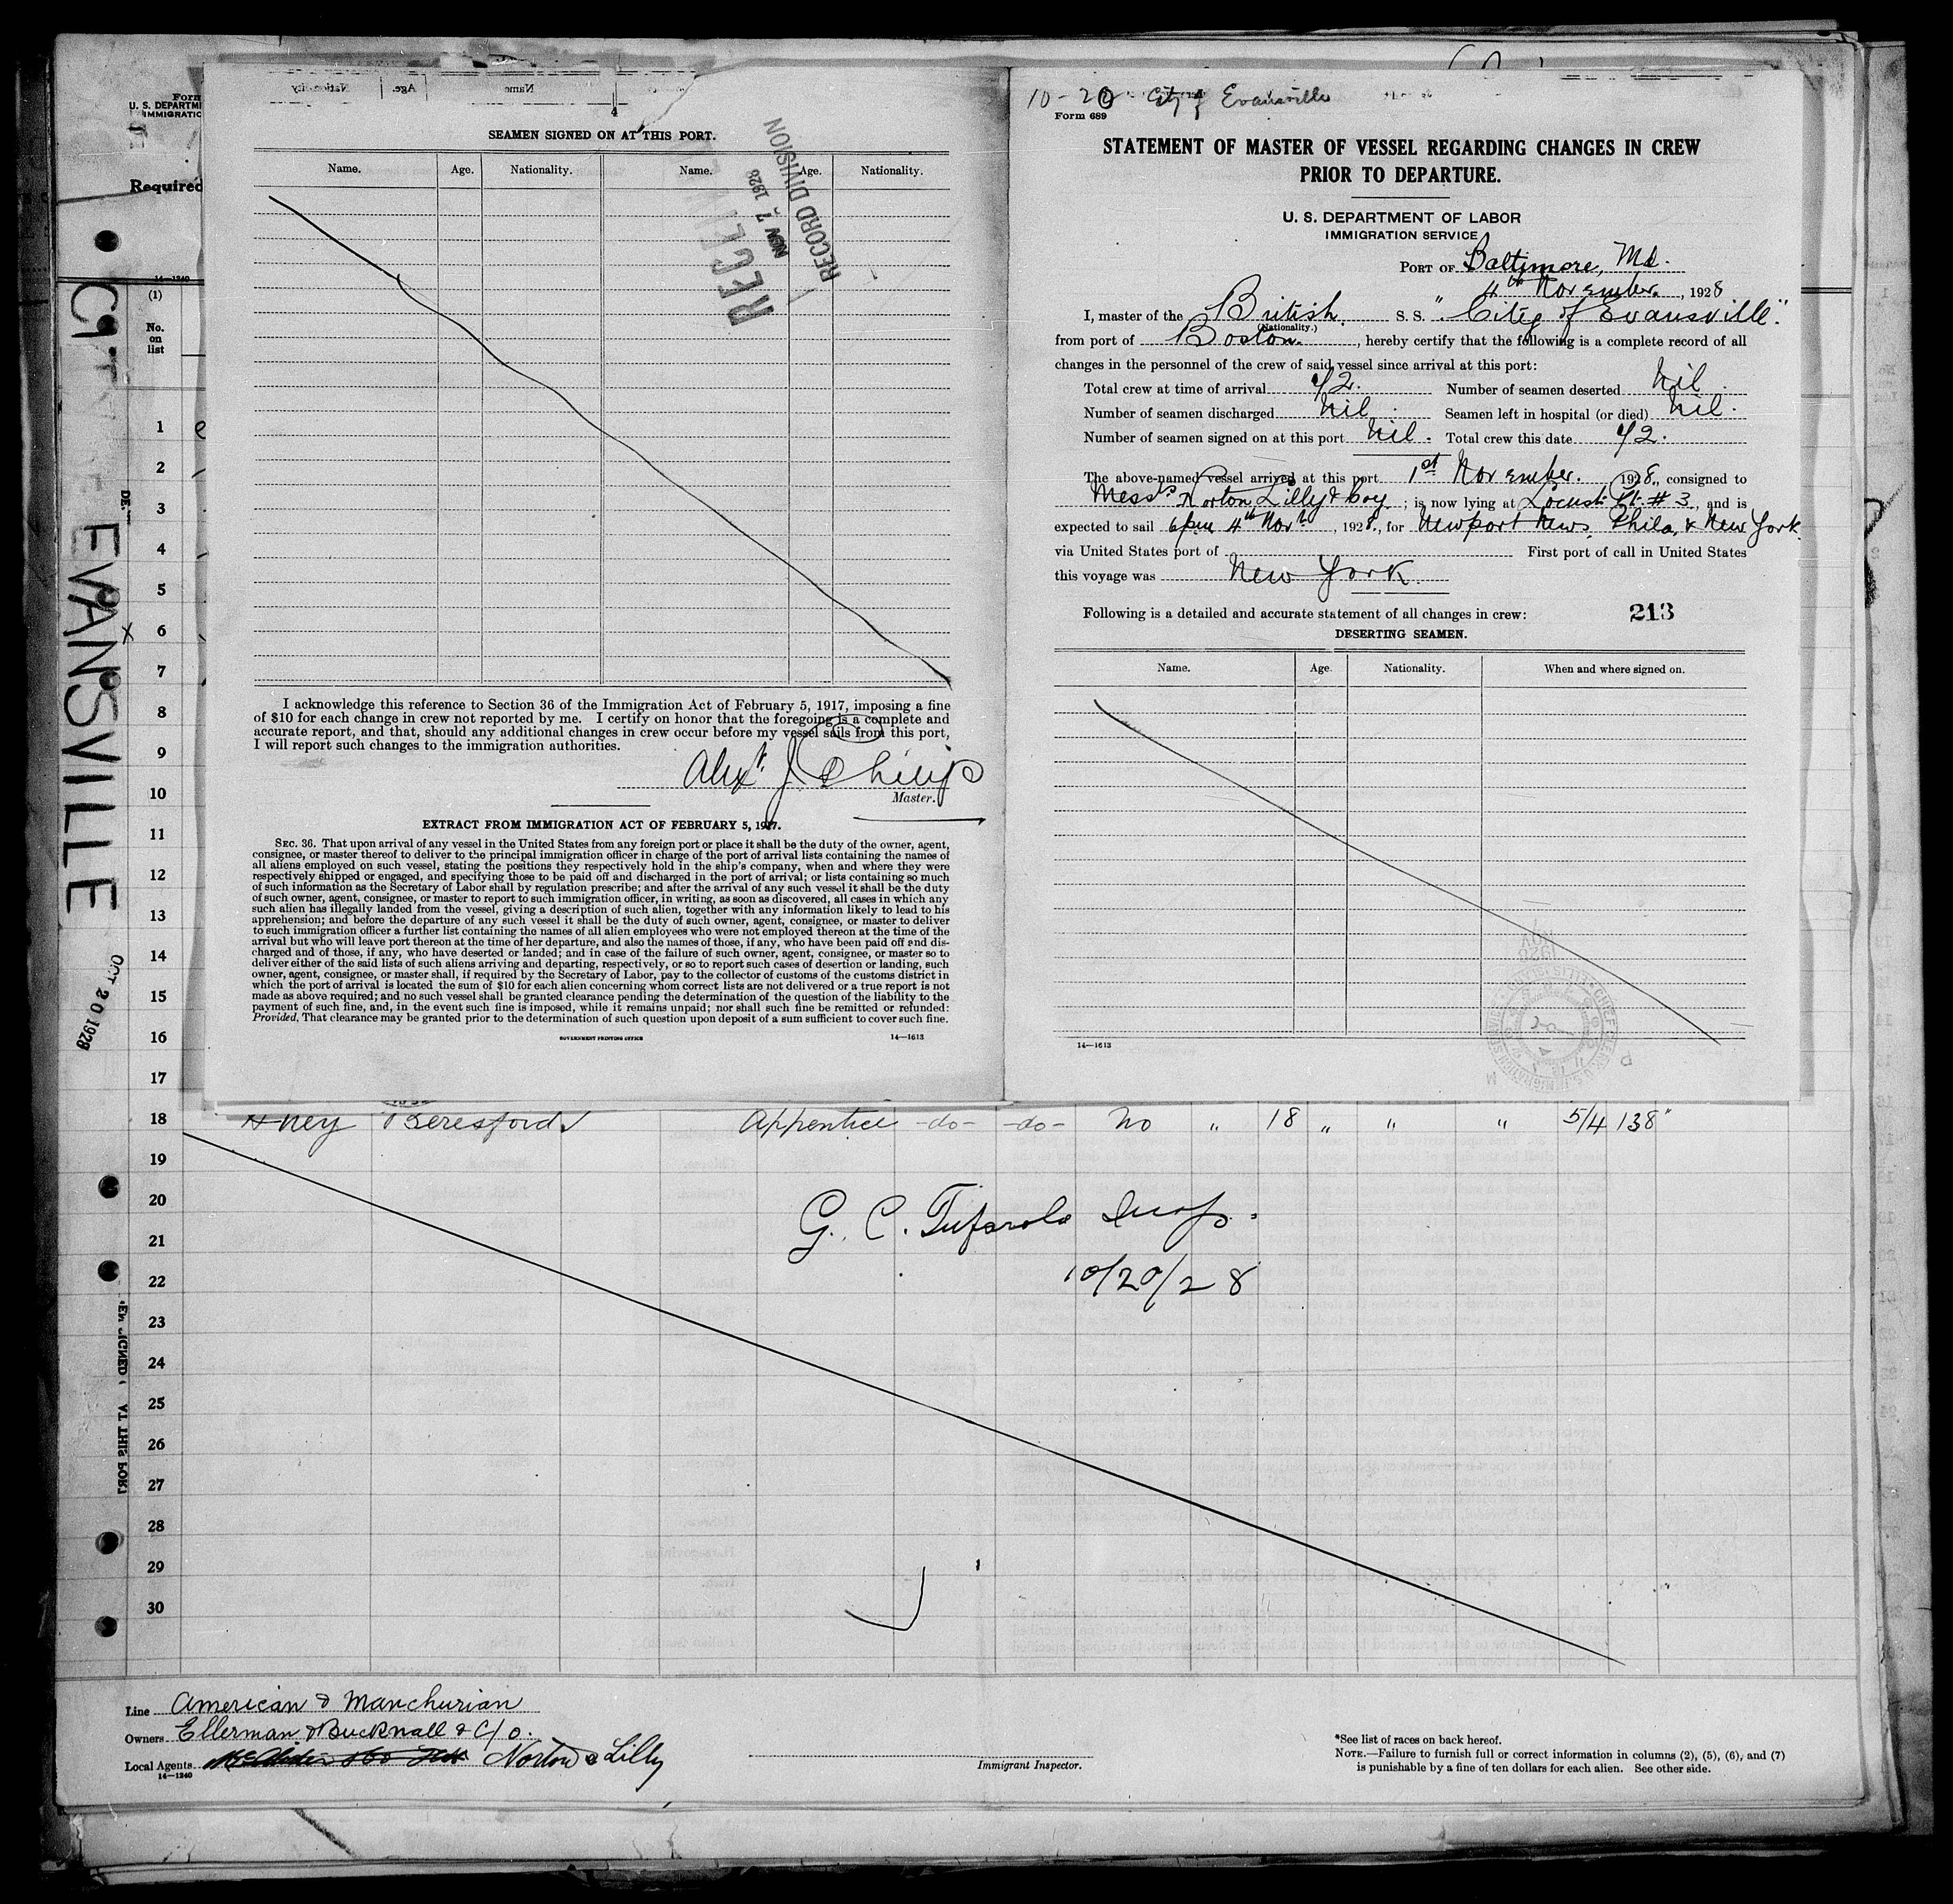 Form
U. S. DEPARTM
IMMIGRATIO
Required
14—1240
(1)
No.
on
list
EVANSVILLE
OCT 20 1928
4
SEAMEN SIGNED ON AT THIS PORT.
Name. Age. Nationality. Name. Age. Nationality.
RECORD DIVISION
NOV 7 1928
I acknowledge this reference to Section 36 of the Immigration Act of February 5, 1917, imposing a fine
of $10 for each change in crew not reported by me. I certify on honor that the foregoing is a complete and
accurate report, and that, should any additional changes in crew occur before my vessel sails from this port,
I will report such changes to the immigration authorities.
Alexr. J. Philip
Master.
EXTRACT FROM IMMIGRATION ACT OF FEBRUARY 5, 1917.
SEC. 36. That upon arrival of any vessel in the United States from any foreign port or place it shall be the duty of the owner, agent,
consignee, or master thereof to deliver to the principal immigration officer in charge of the port of arrival lists containing the names of
all aliens employed on such vessel, stating the positions they respectively hold in the ship's company, when and where they were
respectively shipped or engaged, and specifying those to be paid off and discharged in the port of arrival; or lists containing so much
of such information as the Secretary of Labor shall by regulation prescribe; and after the arrival of any such vessel it shall be the duty
of such owner, agent, consignee, or master to report to such immigration officer, in writing, as soon as discovered, all cases in which any
such alien has illegally landed from the vessel, giving a description of such alien, together with any information likely to lead to his
apprehension; and before the departure of any such vessel it shall be the duty of such owner, agent, consignee, or master to deliver
to such immigration officer a further list containing the names of all alien employees who were not employed thereon at the time of the
arrival but who will leave port thereon at the time of her departure, and also the names of those, if any, who have been paid off and dis-
charged and of those, if any, who have deserted or landed; and in case of the failure of such owner, agent, consignee, or master so to
deliver either of the said lists of such aliens arriving and departing, respectively, or so to report such cases of desertion or landing, such
owner, agent, consignee, or master shall, if required by the Secretary of Labor, pay to the collector of customs of the customs district in
which the port of arrival is located the sum of $10 for each alien concerning whom correct lists are not delivered or a true report is not
made as above required; and no such vessel shall be granted clearance pending the determination of the question of the liability to the
payment of such fine, and, in the event such fine is imposed, while it remains unpaid; nor shall such fine be remitted or refunded:
Provided, That clearance may be granted prior to the determination of such question upon deposit of a sum sufficient to cover such fine.
GOVERNMENT PRINTING OFFICE 14—1613
10-20 City of Evansville
Form 689
STATEMENT OF MASTER OF VESSEL REGARDING CHANGES IN CREW
PRIOR TO DEPARTURE.
U. S. DEPARTMENT OF LABOR
IMMIGRATION SERVICE
PORT OF Baltimore, Md.
4th November, 1928
I, master of the British S. S. "City of Evansville".
(Nationality.)
from port of Boston., hereby certify that the following is a complete record of all
changes in the personnel of the crew of said vessel since arrival at this port:
Total crew at time of arrival 42. Number of seamen deserted Nil.
Number of seamen discharged Nil. Seamen left in hospital (or died) Nil.
Number of seamen signed on at this port Nil. Total crew this date 42.
The above-named vessel arrived at this port 1st November. 1928., consigned to
Messrs Norton Lilly & Coy; is now lying at Locust Pt. # 3, and is
expected to sail 6pm 4th Novr., 1928., for Newport News, Phila, & New York.
via United States port of First port of call in United States
this voyage was New York.
Following is a detailed and accurate statement of all changes in crew: 213
DESERTING SEAMEN.
Name. Age. Nationality. When and where signed on.
14—1613
1
2
3
4
5
x 6
7
8
9
10
11
12
13
14
15
16
17
18 Beresford Apprentice -do- -do- No " 18 " " " 5/4 138"
19
20
G. C. Tufarolo Insp.
21
22 10/20/28
23
24
25
26
27
28
29
30
Line American & Manchurian
Owners Ellerman & Bucknall & C/o.
Local Agents Norton & Lilly
14—1240
Immigrant Inspector.
*See list of races on back hereof.
NOTE.—Failure to furnish full or correct information in columns (2), (5), (6), and (7)
is punishable by a fine of ten dollars for each alien. See other side.